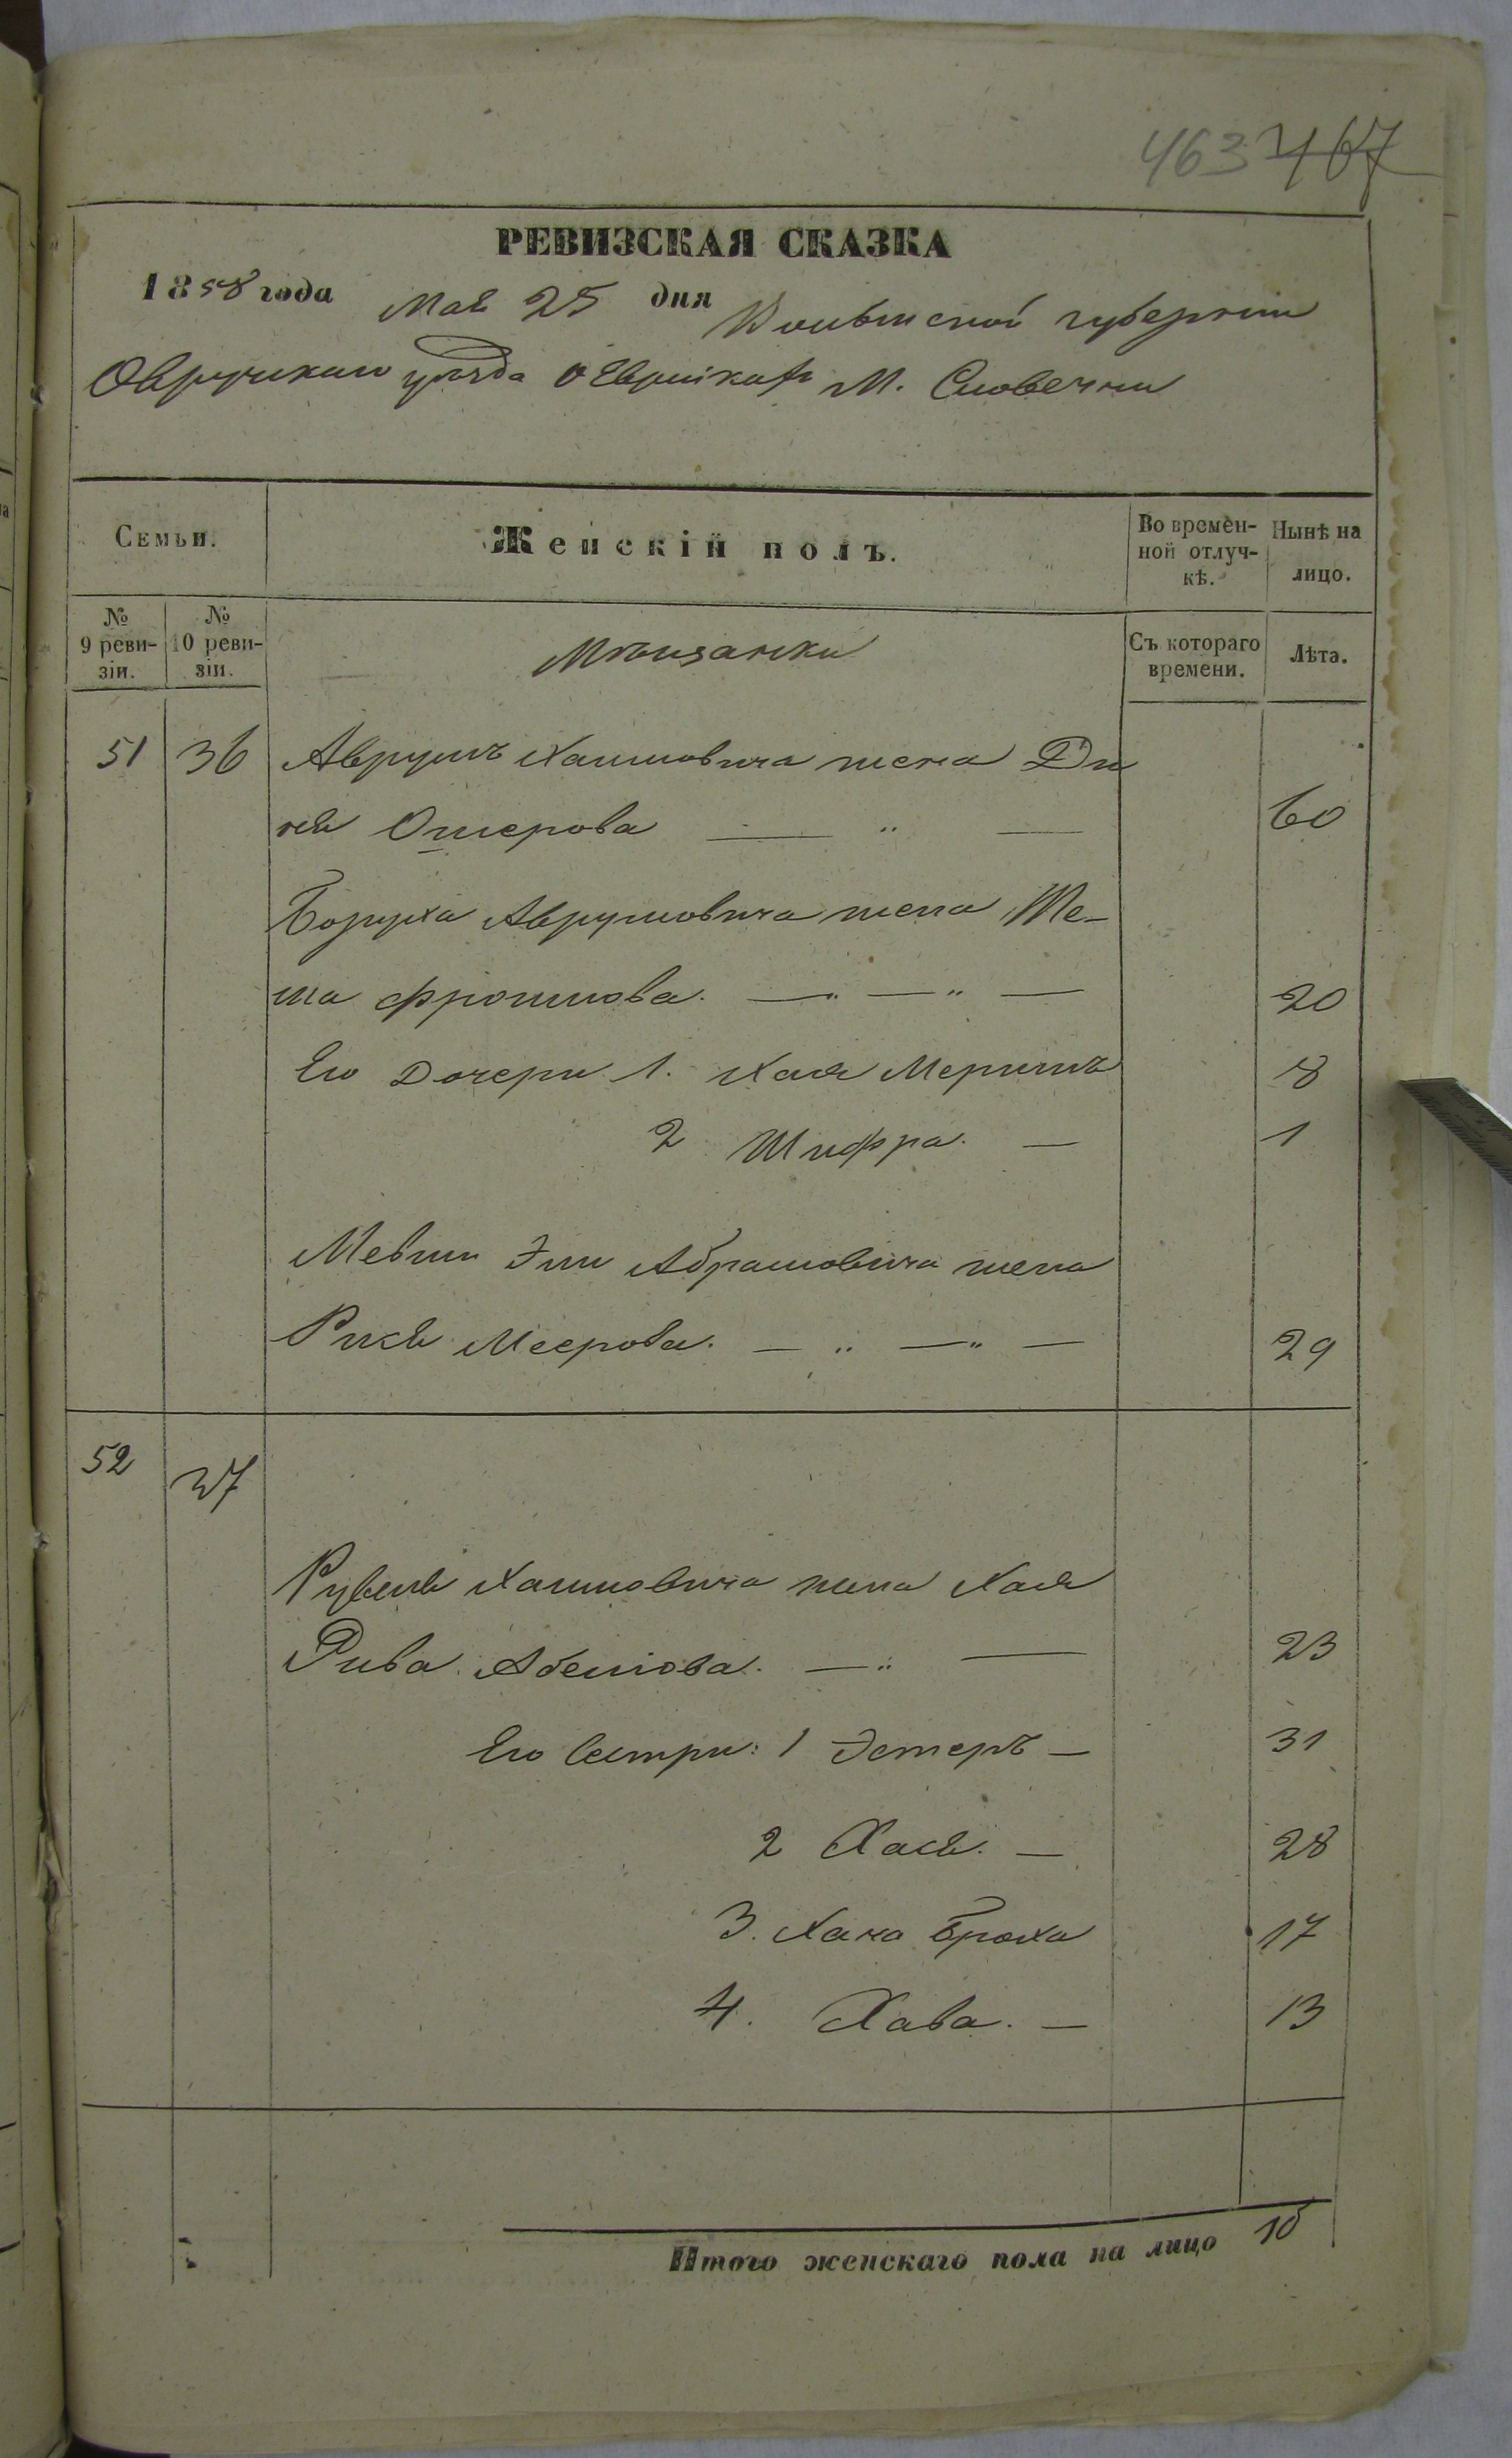 463 467
РЕВИЗСКАЯ СКАЗКА
1858 года Мая 25 дня Волынской губернии
Овручскаго уѣзда о Евреяхъ М. Словечни
Семьи.
Женскій полъ.
Во времен-
ной отлуч-
кѣ.
Нынѣ на
лицо.
№
9 реви-
зіи.
№
10 реви-
зіи.
Мѣщанки
Съ котораго
времени.
Лѣта.
51 36 Аврумъ Хаимовича жена Ди
ня Ошерова 60
Боруха Аврумовича жена
Фроимова. 20
Его Дочери 1. Хая 8
2 Шифра. 1
Эли Абрамовича жена
Меерова. 29
52 37
Рувеня Хаимовича жена Хая
Рива 23
Его Сестры: 1 Эстеръ 31
2 Хася. 28
3. Хана Броха 17
4. Хава. 13
Итого женскаго пола на лицо 10